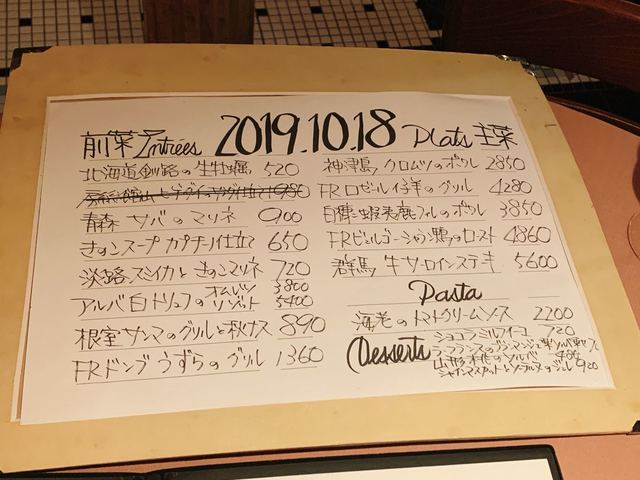 2019.10.18
前菜 Entrées
北海道釧路の生牡蠣 520
980
青森 サバのマリネ 900
きのこスープ カプチーノ仕立て 650
淡路スミイカときのこマリネ 720
アルバ白トリュフの オムレツ 3800
リゾット 5400
根室サンマのグリルと秋ナス 890
FRドンブうずらのグリル 1360
Plats 主菜
神津島 クロムツのポワレ 2850
FRロゼール仔羊のグリル 4280
3850
FRビュルゴーシャラン鴨のロースト 4860
群馬 牛サーロインステーキ 5600
Pasta
海老のトマトクリームソース 2200
Desserts
ショコラミルフイユ 720
ラ・フランスのブランマンジェ
山形
920